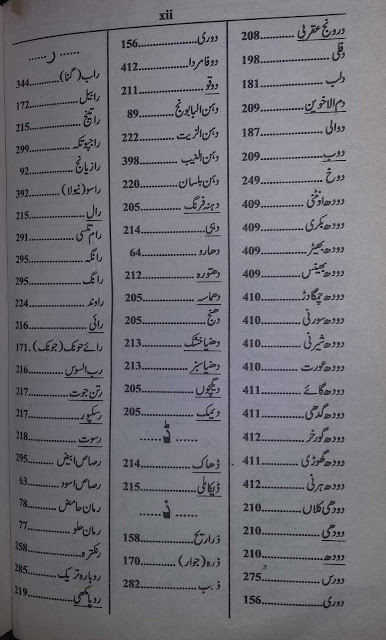 xii
درونج عقربی 208
دفلی 198
دلب 181
دم الاخوین 209
دوالی 187
دوب 209
دوخ 249
دودھ اونٹنی 409
دودھ بکری 409
دودھ بھیڑ 409
دودھ بھینس 409
دودھ چمگادڑ 410
دودھ سورنی 410
دودھ شیرنی 410
دودھ عورت 410
دودھ گائے 411
دودھ گدھی 411
دودھ گورخر 412
دودھ گھوڑی 411
دودھ ہرنی 412
دودھی کلاں 210
دودھی 210
دودھ 210
دورس 275
دوری 156
دوری 156
دوفامردا 412
دوقو 211
دہن البابونج 89
دہن الزیت 222
دہن الغیب 398
دہن بلسان 220
دہنہ فرنگ 205
دہی 214
دھارو 64
دھتورہ 212
دھماسہ 205
دھنج 205
دھنیا خشک 213
دھنیا سبز 213
دیگچوں 205
دیمک 205
ڈ
ڈھاک 214
ڈیکامالی 215
ذ
ذراریح 158
ذرہ (جوار) 170
ذہب 282
ر
راب (گنا) 344
رابیل 172
راتینج 215
راجپوتکہ 299
رازیانج 92
راسو (نیولا) 392
رال 215
رام تلسی 291
رانگہ 295
رانگ 295
راوند 224
رائی 216
رائے جونک (جونک) 171
رب السوس 216
رتن جوت 217
رسکپور 217
رسوت 218
رصاص ابیض 295
رصاص اسود 63
رمان حامض 78
رمان حلو 77
رنکترہ 258
روبارہ تریک 285
روپا مکھی 219